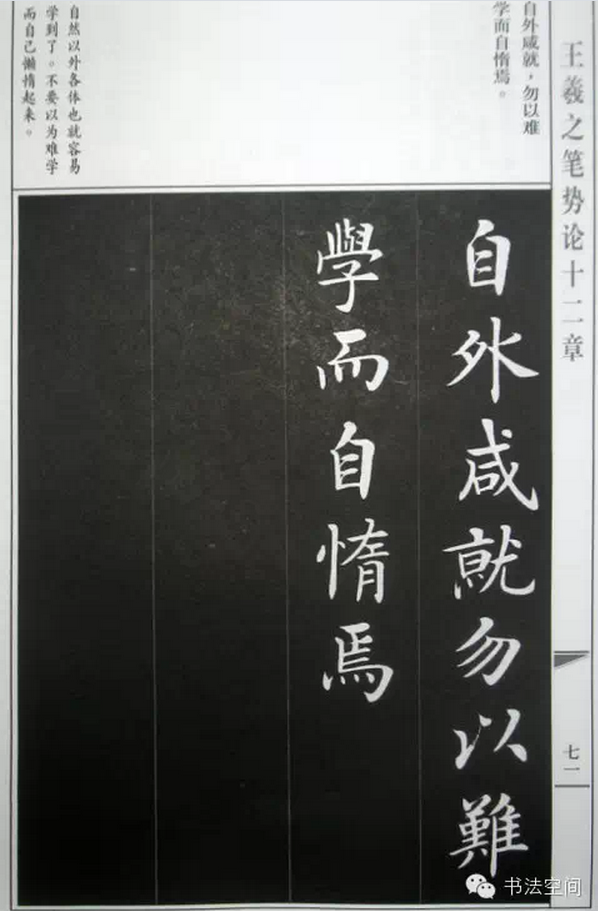 王羲之笔势论十二章
七一
自外咸就，勿以难
学而自惰焉。
自然以外各体也就容易
学到了。不要以为难学
而自己懒惰起来。
自外咸就勿以難
學而自惰焉
书法空间